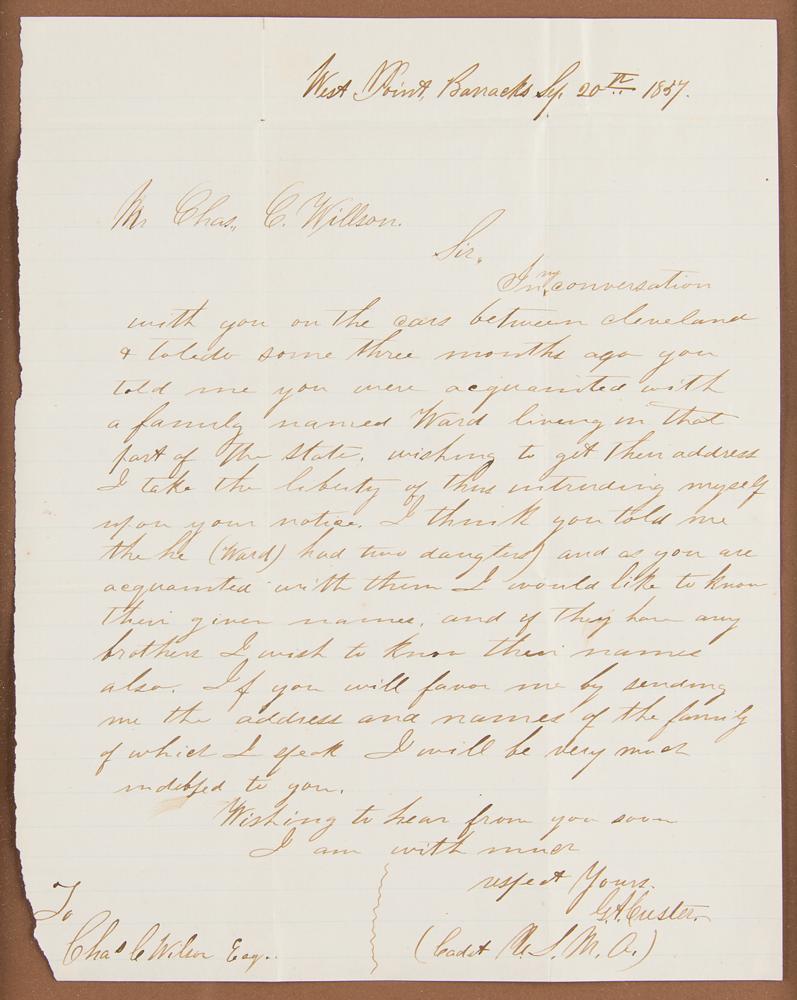 West Point, Barracks Sep. 20th 1857.
Mr Chas,, C. Willson.
Sir,
In my conversation
with you on the cars between cleveland
& toledo some three months ago you
told me you were acquainted with
a family named Ward living in that
part of the state. wishing to get their address
I take the liberty of thus intruding myself
upon your notice. I think you told me
the he (Ward) had two daugters) and as you are
acquainted with them I would like to know
their given names, and if they have any
brothers I wish to know their names
also. If you will favor me by sending
me the address and names of the family
of which I speak I will be very much
indebted to you.
Wishing to hear from you soon
I am with much
respect Yours.
G. A. Custer,
(Cadet U. S. M. A.)
To
Chas C Wilson Esq.